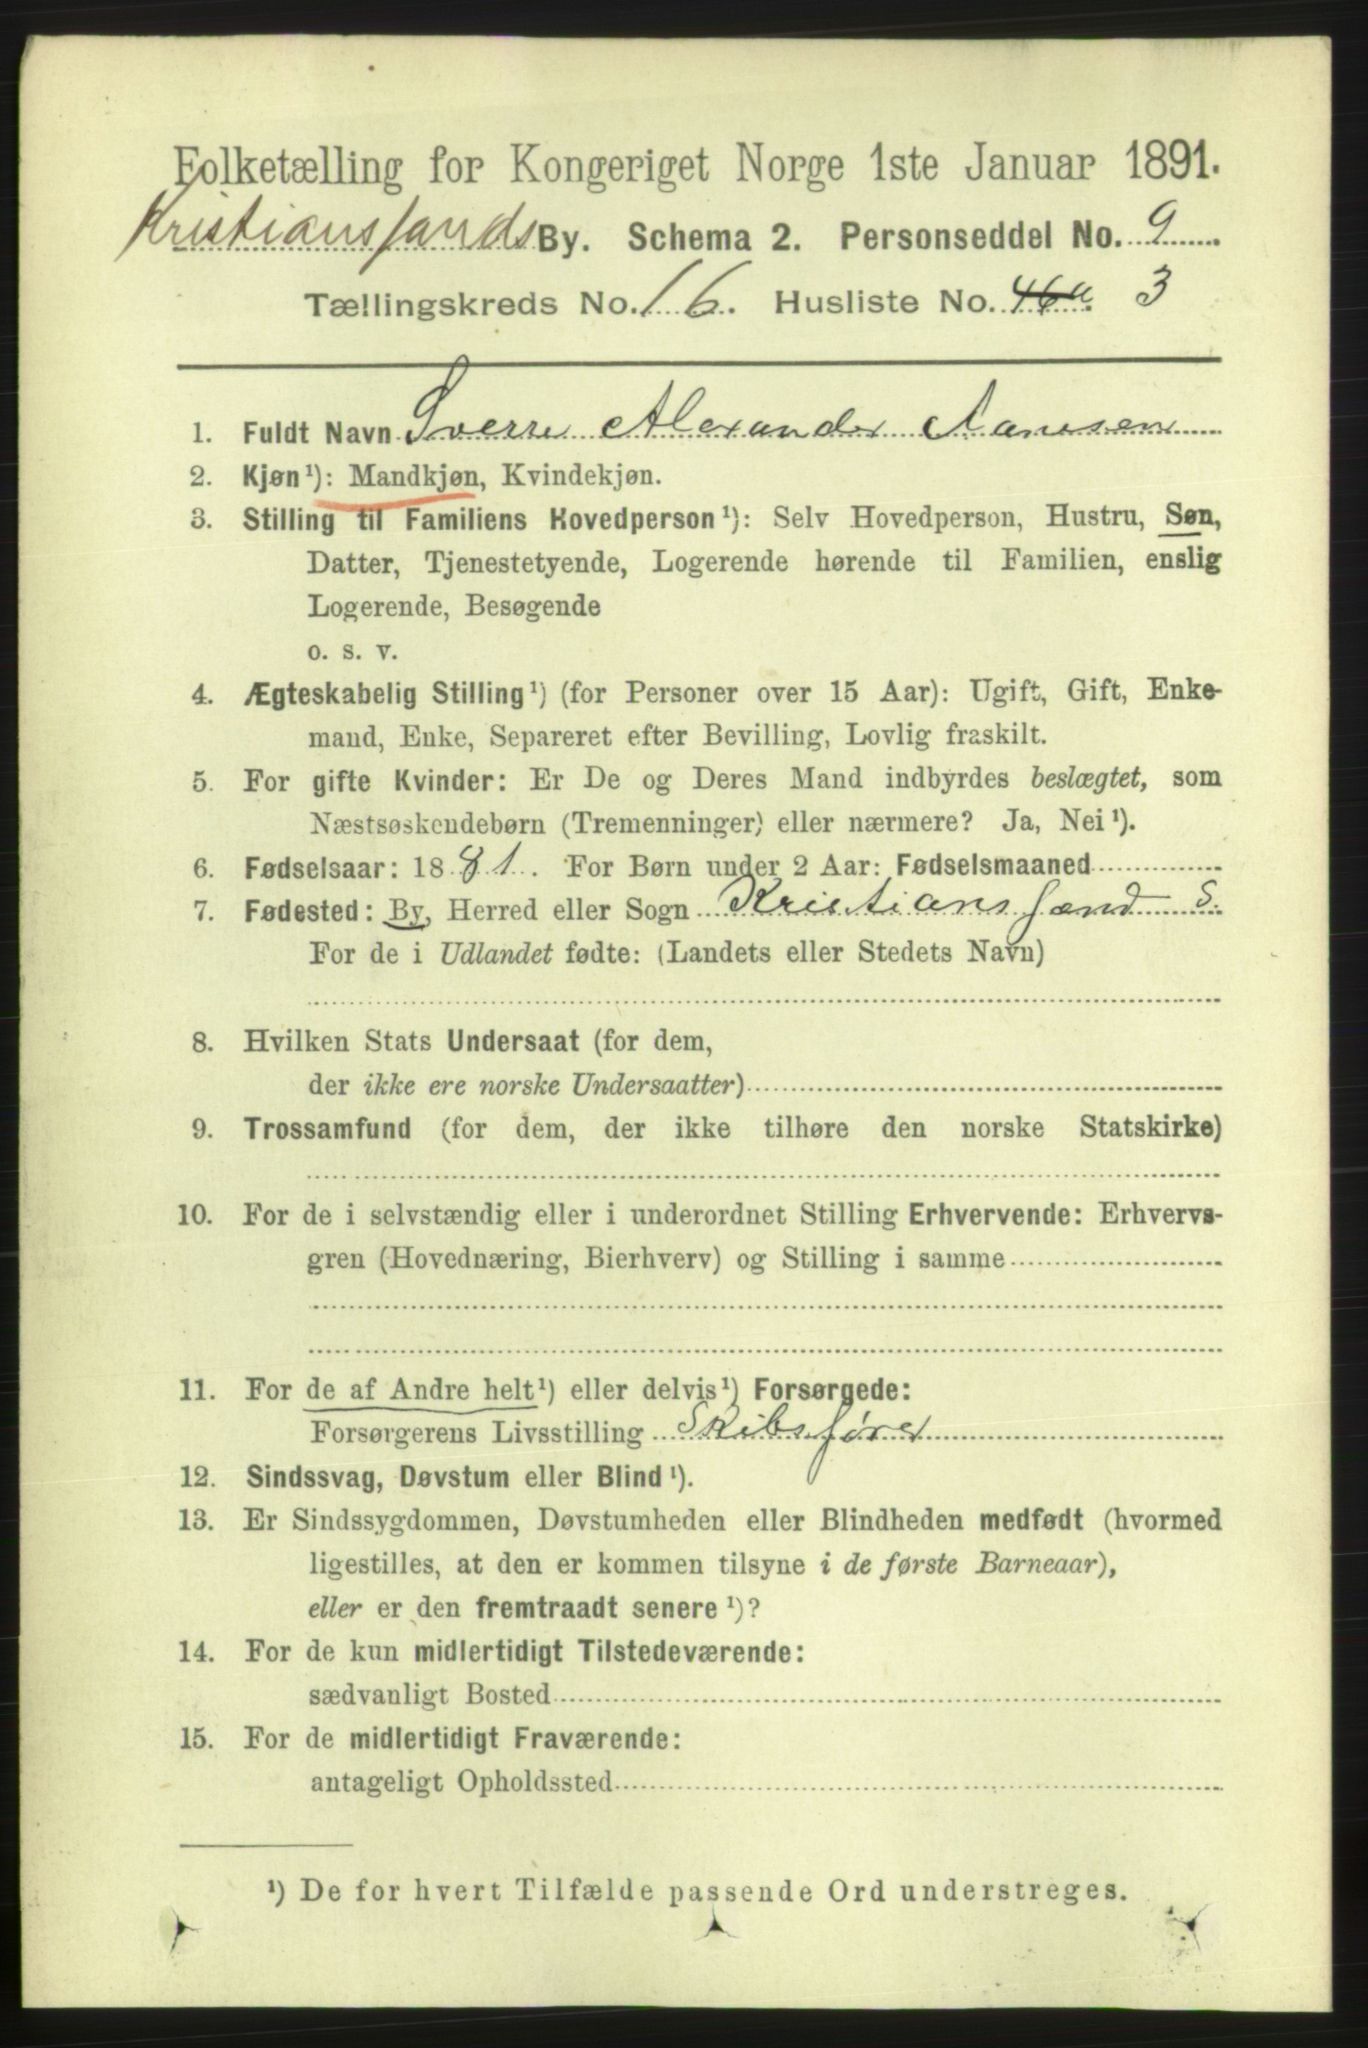 Folketælling for Kongeriget Norge 1ste Januar 1891.
Kristianssands By. Schema 2. Personseddel No. 9
Tællingskreds No. 16. Husliste No. 46a. 3
1. Fuldt Navn Sverre Alexander Aanesen
2. Kjøn¹): Mandkjøn, Kvindekjøn.
3. Stilling til Familiens Hovedperson¹): Selv Hovedperson, Hustru, Søn,
Datter, Tjenestetyende, Logerende hørende til Familien, enslig
Logerende, Besøgende
o. s. v.
4. Ægteskabelig Stilling¹) (for Personer over 15 Aar): Ugift, Gift, Enke-
mand, Enke, Separeret efter Bevilling, Lovlig fraskilt.
5. For gifte Kvinder: Er De og Deres Mand indbyrdes beslægtet, som
Næstsøskendebørn (Tremenninger) eller nærmere? Ja, Nei¹).
6. Fødselsaar: 1881. For Børn under 2 Aar: Fødselsmaaned
7. Fødested: By, Herred eller Sogn Kristianssand S.
For de i Udlandet fødte: (Landets eller Stedets Navn)
8. Hvilken Stats Undersaat (for dem,
der ikke ere norske Undersaatter)
9. Trossamfund (for dem, der ikke tilhøre den norske Statskirke)
10. For de i selvstændig eller i underordnet Stilling Erhvervende: Erhvervs-
gren (Hovednæring, Bierhverv) og Stilling i samme
11. For de af Andre helt¹) eller delvis¹) Forsørgede:
Forsørgerens Livsstilling Skibsfører
12. Sindssvag, Døvstum eller Blind¹).
13. Er Sindssygdommen, Døvstumheden eller Blindheden medfødt (hvormed
ligestilles, at den er kommen tilsyne i de første Barneaar),
eller er den fremtraadt senere¹)?
14. For de kun midlertidigt Tilstedeværende:
sædvanligt Bosted
15. For de midlertidigt Fraværende:
antageligt Opholdssted
¹) De for hvert Tilfælde passende Ord understreges.